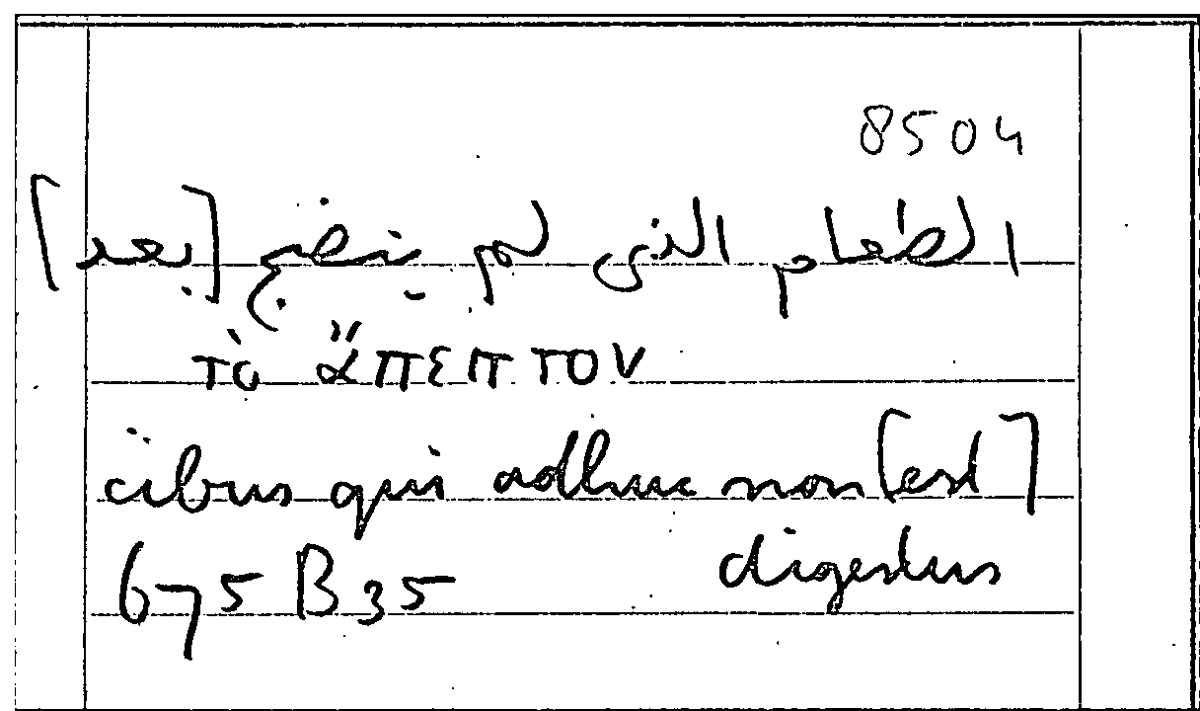 8504
الطعام الذى لم ينضج [بعد]
τὸ ἄπεπτον
cibus qui adhuc non [est]
digestus
675 B 35